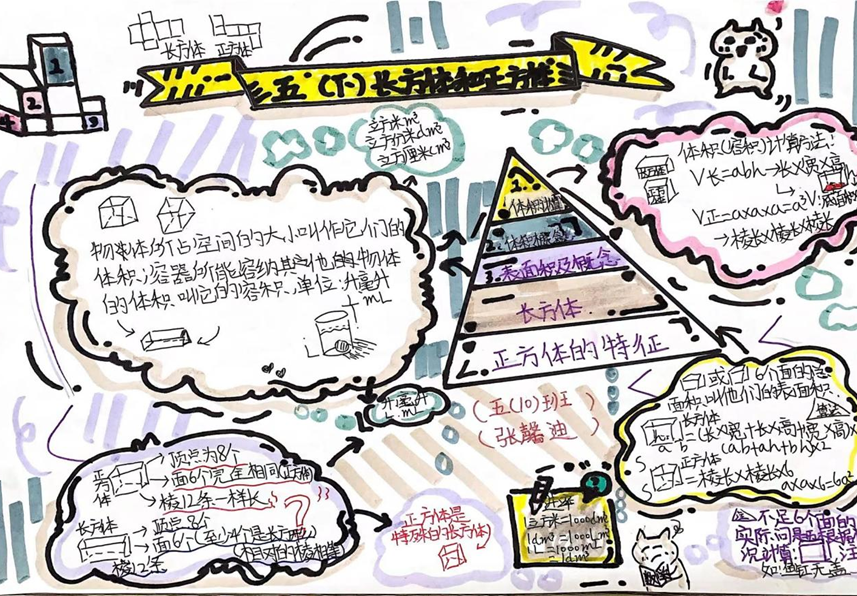 长方体 正方体
五(下)长方体和正方体
1
2
3
立方米m³
立方分米dm³
立方厘米cm³
物体所占空间的大小叫作它们的
体积,容器所能容纳其他的物体
的体积叫它的容积,单位:升毫升
L mL
1.
体积计算
2.体积概念
3.表面积及概念
长方体
正方体的特征
体积(容积)计算方法:
V长=abh→长×宽×高
V正=a×a×a=a³
→棱长×棱长×棱长
升毫升
L mL
(五(10)班)
(张馨迪)
6个面的总
面积叫他们的表面积.
长方体
=(长×宽+长×高+宽×高)×
(ab+ah+bh)×2
a b
正方体
=棱长×棱长×6
a×a×6=6a²
顶点为8个
面6个完全相同
棱12条一样长
?
长方体
顶点8个
面6个(至少4个是长方形)
棱12条
正方体是
特殊的长方体
1dm³=1000
L=1000mL
=1dm³
不足6个面的
实际问题要根据
况计算:
如:鱼缸无盖